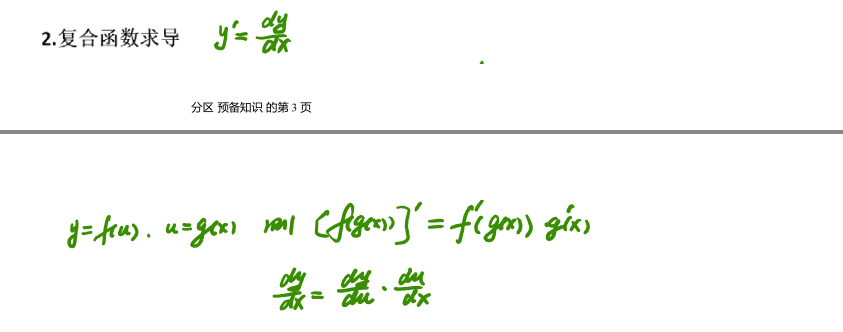 2.复合函数求导 y'=dy/dx
分区 预备知识 的第 3 页
y=f(u). u=g(x) 则 [f(g(x))]'=f'(g(x)) g'(x)
dy/dx = dy/du · du/dx